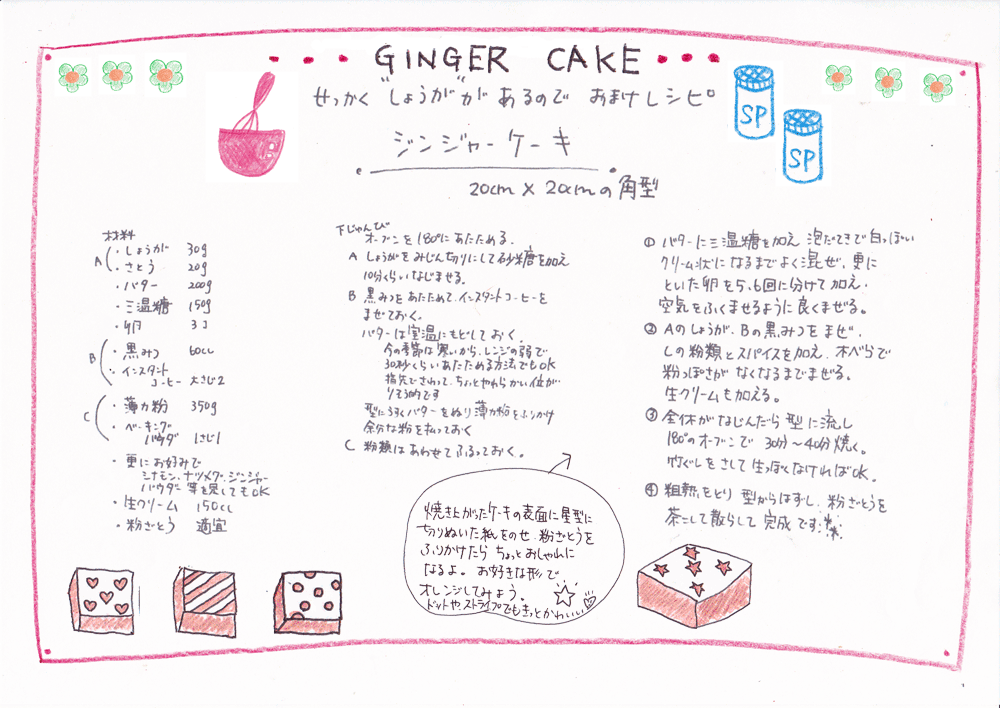 GINGER CAKE
せっかく"しょうが"があるので おまけレシピ
ジンジャーケーキ
20cm × 20cmの角型
SP
SP
材料
A
・しょうが 30g
・さとう 20g
・バター 200g
・三温糖 150g
・卵 3コ
B
・黒みつ 60cc
・インスタント
コーヒー 大さじ2
C
・薄力粉 350g
・ベーキング
パウダ 1さじ1
・更にお好みで
シナモン、ナツメグ、ジンジャー
パウダー 等を足してもOK
・生クリーム 150cc
・粉ざとう 適宜
下じゅんび
オーブンを180°にあたためる。
A しょうがをみじん切りにして砂糖を加え
10分くらいなじませる。
B 黒みつをあたためて、インスタントコーヒーを
まぜておく。
バターは室温にもどしておく。
今の季節は寒いから、レンジの弱で
30秒くらいあたためる方法でもOK
指先でさわって、ちょっとやわらかい位が
りそう的です
型にうすくバターをぬり薄力粉をふりかけ
余分な粉を払っておく
C 粉類はあわせてふるっておく。
焼き上がったケーキの表面に星型に
切りぬいた紙をのせ 粉ざとうを
ふりかけたら ちょっとおしゃれに
なるよ。お好きな形で
オレンジしてみよう。
ドットやストライプでもきっとかわいい
① バターに三温糖を加え 泡だてきで白っぽい
クリーム状になるまでよく混ぜ、更に
といた卵を5、6回に分けて加え、
空気をふくませるように良くまぜる。
② Aのしょうが、Bの黒みつをまぜ、
Cの粉類とスパイスを加え、木べらで
粉っぽさがなくなるまでまぜる。
生クリームも加える。
③ 全体がなじんだら型に流し
180°のオーブンで 30分～40分焼く。
竹ぐしをさして生っぽくなければOK。
④ 粗熱をとり 型からはずし、粉ざとうを
茶こして散らして 完成です